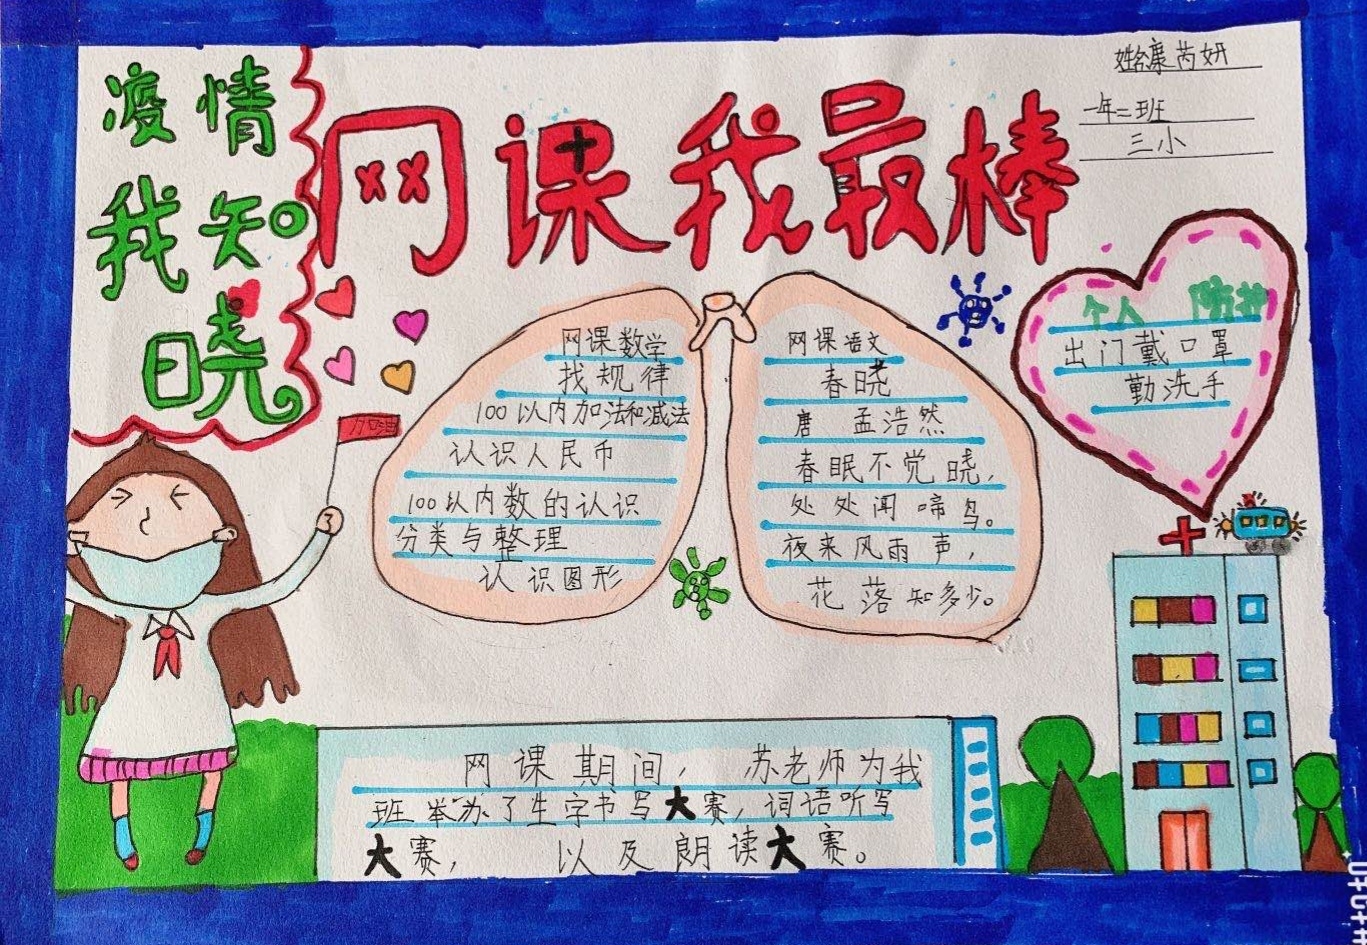 姓名康芮妍
一年二班
三小
疫情
我知
晓
网课我最棒
加油
网课数学
找规律
100以内加法和减法
认识人民币
100以内数的认识
分类与整理
认识图形
网课语文
春晓
唐 孟浩然
春眠不觉晓，
处处闻啼鸟。
夜来风雨声，
花落知多少。
个人 防护
出门戴口罩
勤洗手
网课期间， 苏老师为我
班举办了生字书写大赛，词语听写
大赛， 以及朗读大赛。